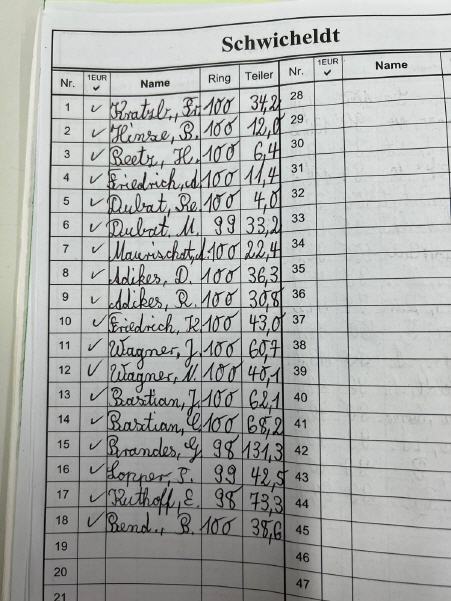 Schwicheldt
Nr. 1EUR ✓ Name Ring Teiler Nr. 1EUR ✓ Name
1 ✓ Kratzb., Fr. 100 34,2 28
2 ✓ Hinse, B. 100 12,0 29
3 ✓ Beetz, H. 100 6,4 30
4 ✓ Friedrich, 100 11,4 31
5 ✓ Dubat, Re. 100 4,0 32
6 ✓ Dubat, M. 99 33,2 33
7 ✓ Maurischat, 100 22,4 34
8 ✓ Adikes, D. 100 36,3 35
9 ✓ Adikes, R. 100 30,8 36
10 ✓ Friedrich, K. 100 43,0 37
11 ✓ Wagner, J. 100 60,7 38
12 ✓ Wagner, N. 100 40,1 39
13 ✓ Bastian, J. 100 62,1 40
14 ✓ Bastian, C. 100 68,2 41
15 ✓ Brandes, G. 98 131,3 42
16 ✓ Lopper, P. 99 42,5 43
17 ✓ Kuthoff, E. 98 73,3 44
18 ✓ Bend., B. 100 38,6 45
19 46
20 47
21